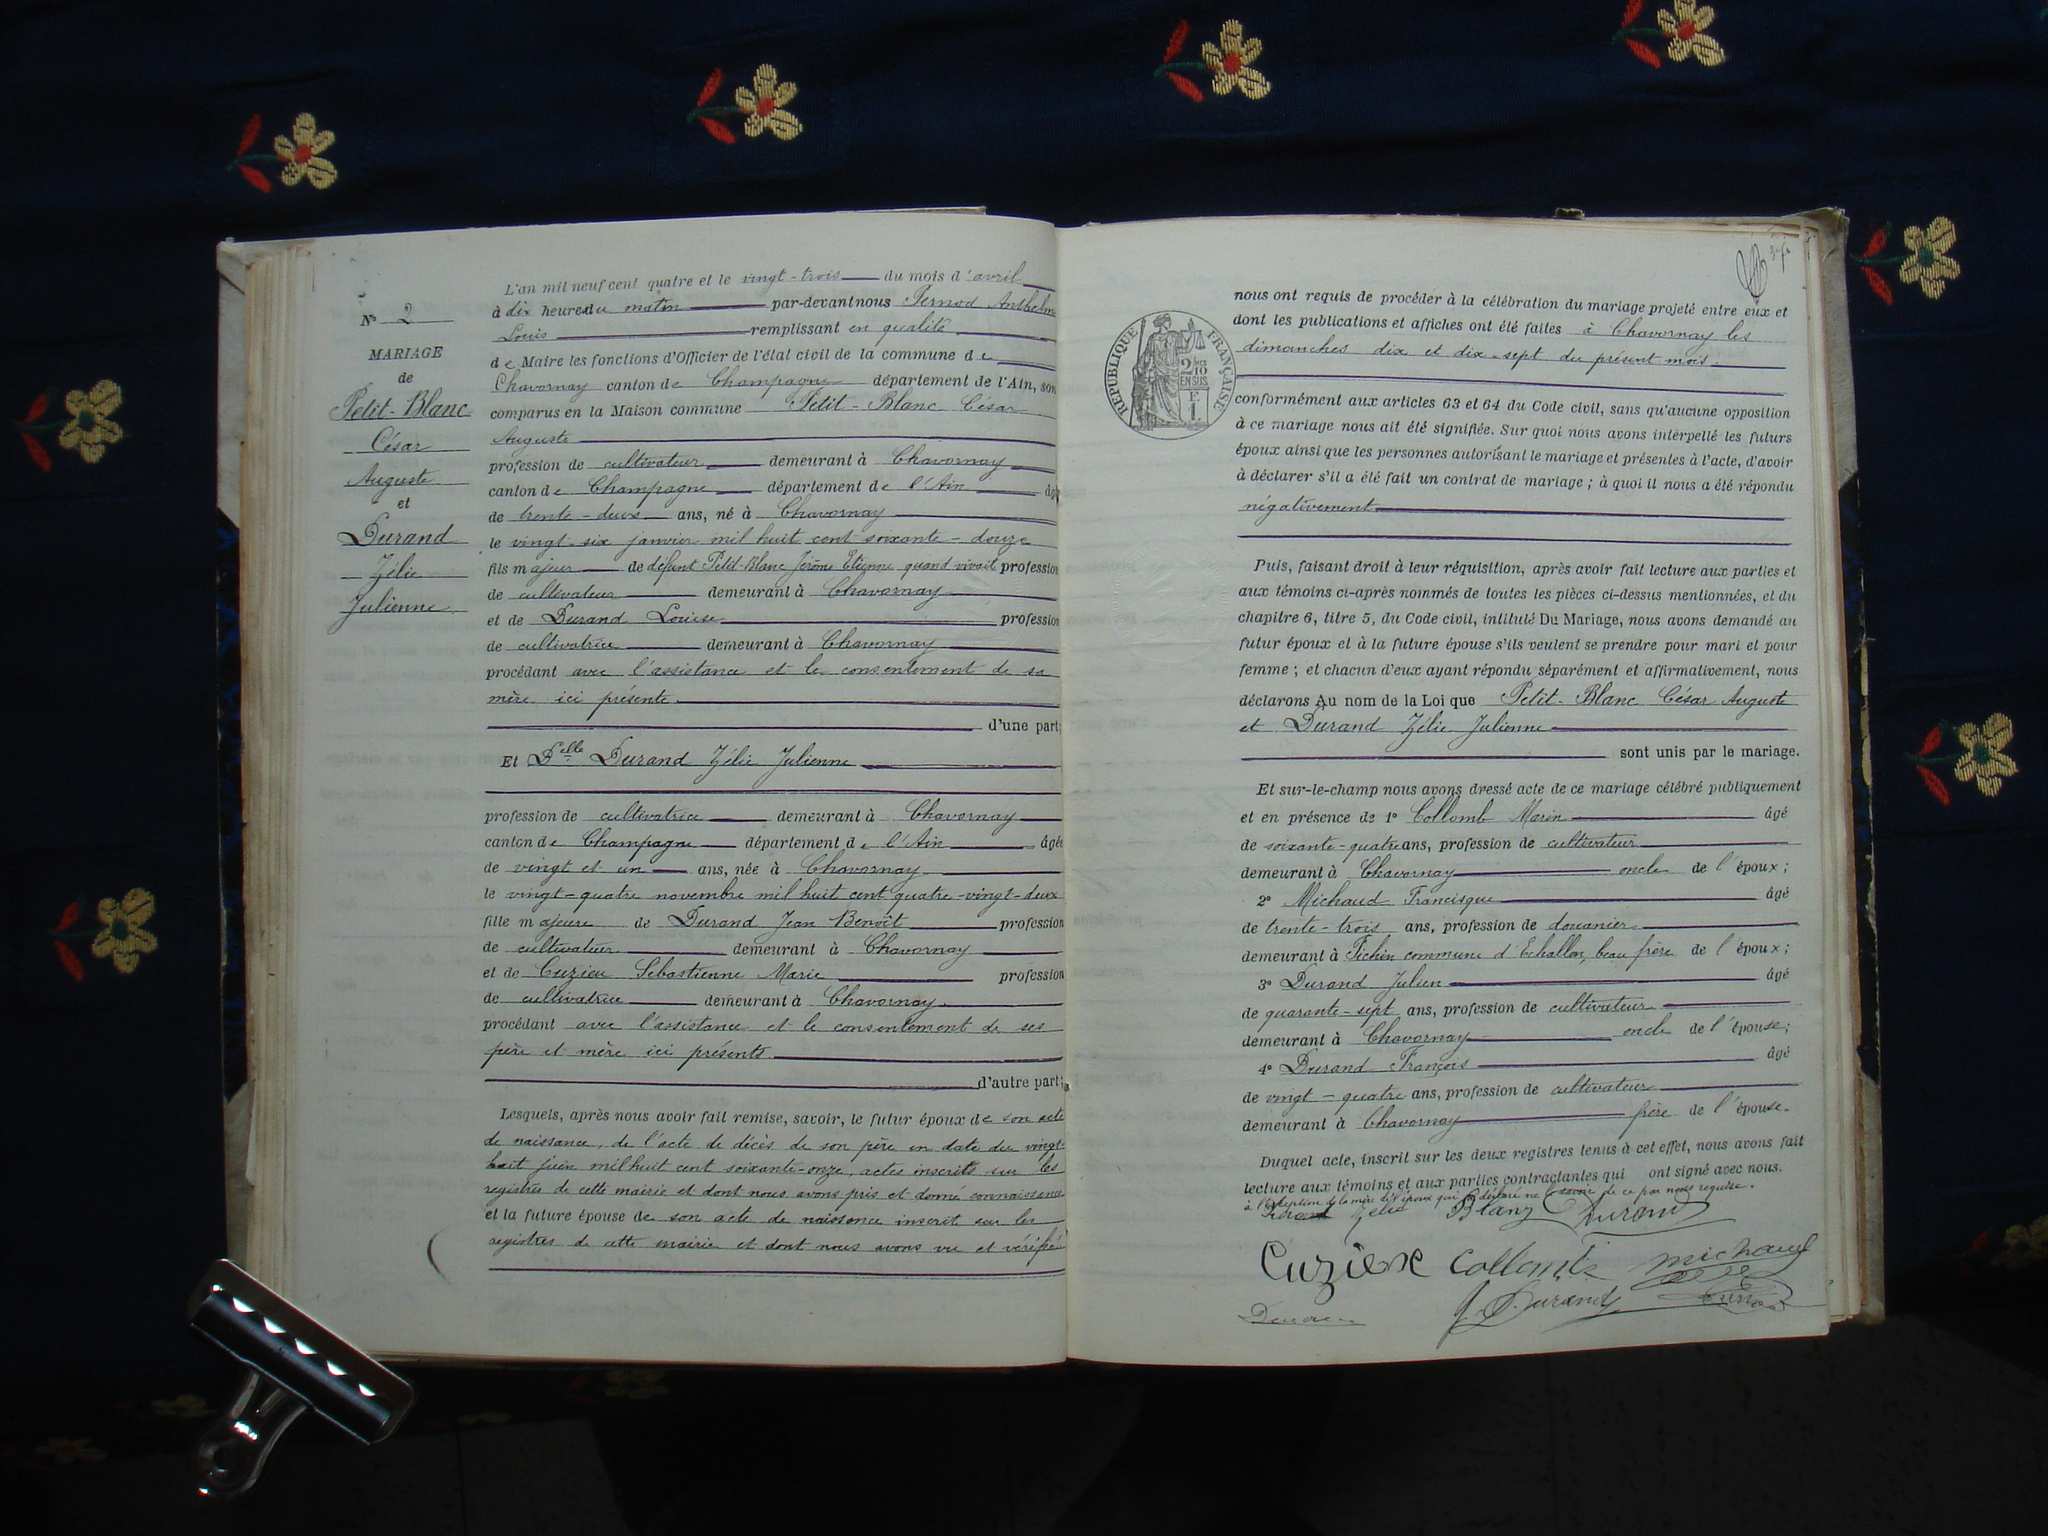 N° 2
MARIAGE
de
Petit-Blanc
César
Auguste
et
Durand
Zélie
Julienne
L'an mil neuf cent quatre et le vingt-trois du mois d'avril
à dix heures du matin par-devant nous Pernod Anthelme
Louis remplissant en qualité
de Maire les fonctions d'Officier de l'état civil de la commune de
Chavornay canton de Champagne département de l'Ain, son
comparus en la Maison commune Petit-Blanc César
Auguste
profession de cultivateur demeurant à Chavornay
canton de Champagne département de l'Ain âgé
de trente-deux ans, né à Chavornay
le vingt-six janvier mil huit cent soixante-douze
fils majeur de défunt Petit-Blanc Jérôme Etienne quand vivait profession
de cultivateur demeurant à Chavornay
et de Durand Louise profession
de cultivatrice demeurant à Chavornay
procédant avec l'assistance et le consentement de sa
mère ici présente
d'une part;
Et Delle Durand Zélie Julienne
profession de cultivatrice demeurant à Chavornay
canton de Champagne département de l'Ain âgée
de vingt et un ans, née à Chavornay
le vingt-quatre novembre mil huit cent quatre-vingt-deux
fille majeure de Durand Jean Benoît profession
de cultivateur demeurant à Chavornay
et de Cuzieu Sébastienne Marie profession
de cultivatrice demeurant à Chavornay
procédant avec l'assistance et le consentement de ses
père et mère ici présents
d'autre part;
Lesquels, après nous avoir fait remise, savoir, le futur époux de son acte
de naissance, de l'acte de décès de son père en date du vingt-
huit juin mil huit cent soixante-onze, actes inscrits sur les
registres de cette mairie et dont nous avons pris et donné connaissance
et la future épouse de son acte de naissance inscrit sur les
registres de cette mairie et dont nous avons vu et vérifié
RÉPUBLIQUE FRANÇAISE
2/10 EN SUS
F.
1.
nous ont requis de procéder à la célébration du mariage projeté entre eux et
dont les publications et affiches ont été faites à Chavornay les
dimanches dix et dix-sept du présent mois
conformément aux articles 63 et 64 du Code civil, sans qu'aucune opposition
à ce mariage nous ait été signifiée. Sur quoi nous avons interpellé les futurs
époux ainsi que les personnes autorisant le mariage et présentes à l'acte, d'avoir
à déclarer s'il a été fait un contrat de mariage; à quoi il nous a été répondu
négativement
Puis, faisant droit à leur réquisition, après avoir fait lecture aux parties et
aux témoins ci-après nommés de toutes les pièces ci-dessus mentionnées, et du
chapitre 6, titre 5, du Code civil, intitulé Du Mariage, nous avons demandé au
futur époux et à la future épouse s'ils veulent se prendre pour mari et pour
femme; et chacun d'eux ayant répondu séparément et affirmativement, nous
déclarons Au nom de la Loi que Petit-Blanc César Auguste
et Durand Zélie Julienne
sont unis par le mariage.
Et sur-le-champ nous avons dressé acte de ce mariage célébré publiquement
et en présence de 1° Collomb Marin âgé
de soixante-quatre ans, profession de cultivateur
demeurant à Chavornay oncle de l'époux;
2° Michaud Francisque âgé
de trente-trois ans, profession de douanier
demeurant à commune d'Echallon, beau frère de l'époux;
3° Durand Julien âgé
de quarante-sept ans, profession de cultivateur
demeurant à Chavornay oncle de l'épouse;
4° Durand François âgé
de vingt-quatre ans, profession de cultivateur
demeurant à Chavornay frère de l'épouse.
Duquel acte, inscrit sur les deux registres tenus à cet effet, nous avons fait
lecture aux témoins et aux parties contractantes qui ont signé avec nous.
à l'exception de la mère de l'époux qui a déclaré ne le savoir de ce par nous requise.
Zélie Blanz Durand
Cuzieux Collomb Michaud
J. Durand